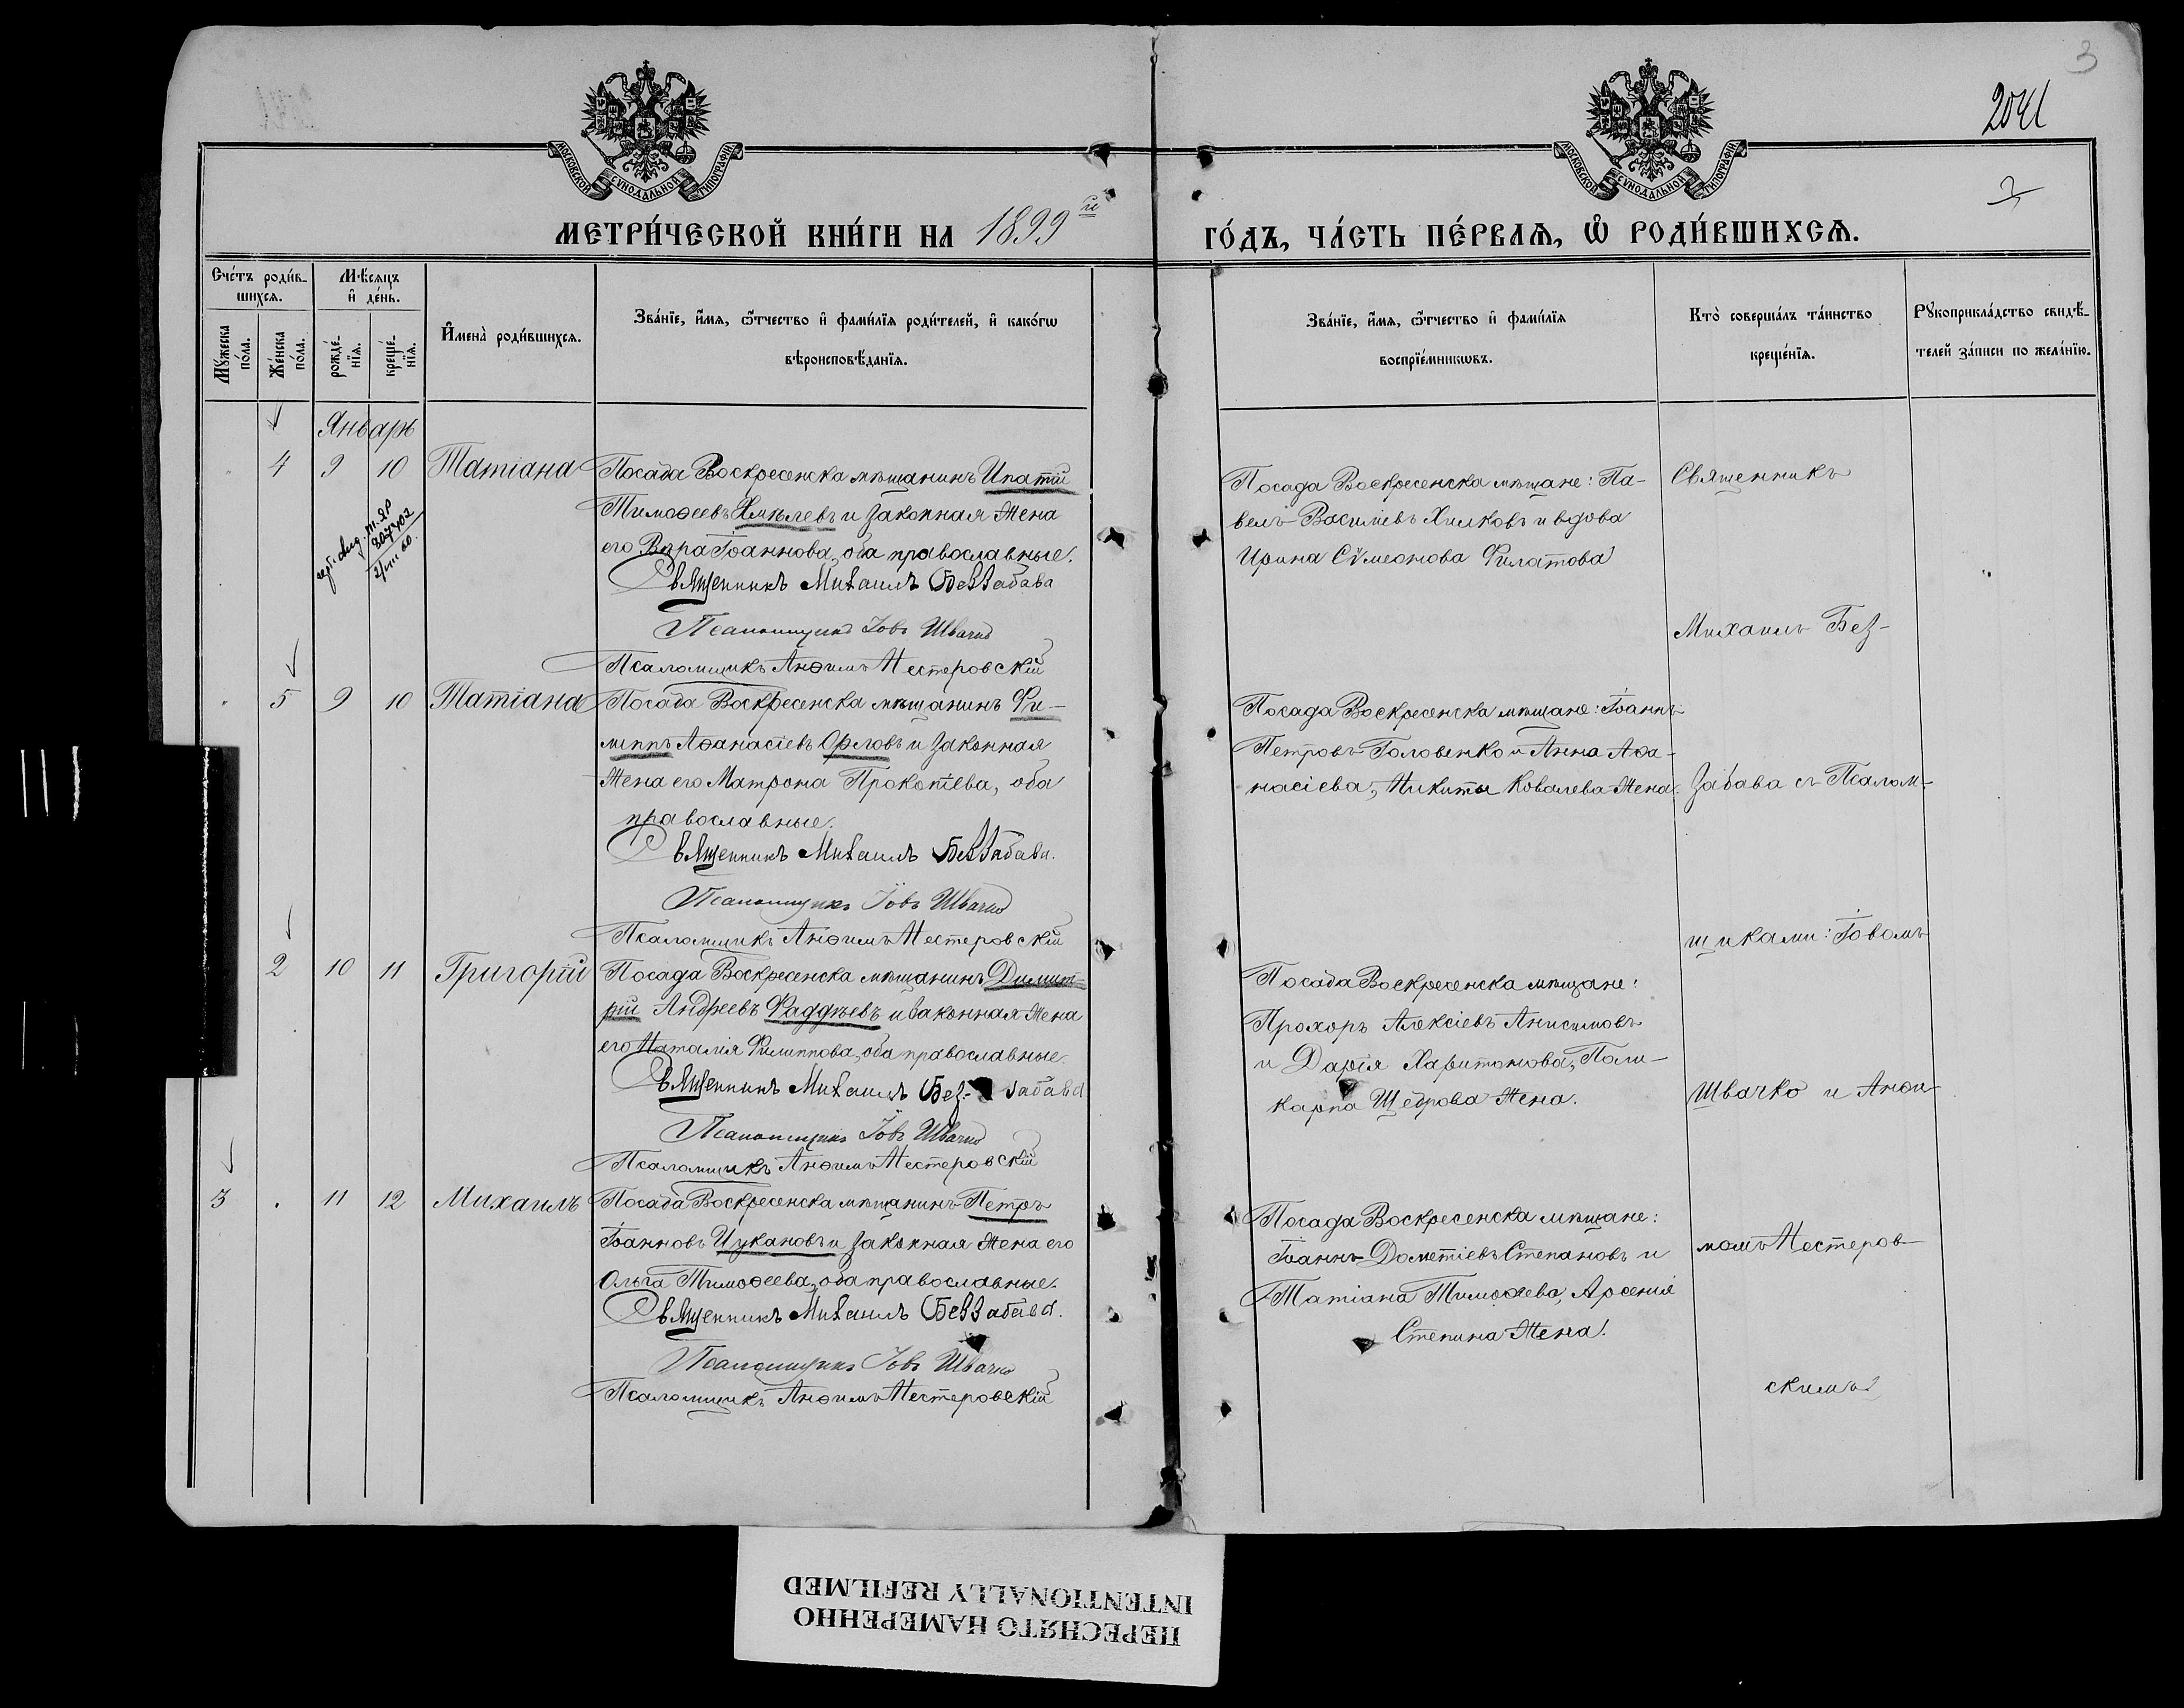 3
2041
МОСКОВСКОЙ СѴНОДАЛЬНОЙ ТИПОГРАФІИ
МОСКОВСКОЙ СѴНОДАЛЬНОЙ ТИПОГРАФІИ
МЕТРИ́ЧЕСКОЙ КНИ́ГИ НА 1899й
ГО́ДЪ, ЧА́СТЬ ПЕ́РВАѦ, Ѡ҆ РОДИ́ВШИХСѦ.
Сче́тъ роди́в-
шихсѧ.
Мѣ́сѧцъ
и҆ де́нь.
Мꙋ́жеска
по́ла.
Же́нска
по́ла.
рожде́-
нїѧ.
креще́-
нїѧ.
И҆мена̀ роди́вшихсѧ.
Зва́нїе, и҆́мѧ, ѻ҆́тчество и҆ фами́лїѧ роди́телей, и҆ како́гѡ
вѣроисповѣ́данїѧ.
Зва́нїе, и҆́мѧ, ѻ҆́тчество и҆ фами́лїѧ
воспрїе́мникѡвъ.
Кто̀ соверша́лъ та́инство
креще́нїѧ.
Рꙋкоприкла́дство свидѣ́-
телей за́писи по жела́нїю.
Январь
4 9 10 Татіана
Посада Воскресенска мѣщанинъ Ипатій
Тимоѳеевъ Хмѣлевъ и законная жена
его Вѣра Іоаннова, оба православные.
Священникъ Михаилъ Беззабава
Псаломщикъ Іовъ Швачко
Псаломщикъ Анѳимъ Нестеровскій
Посада Воскресенска мѣщане: Па-
велъ Василіевъ Хилковъ и вдова
Ирина Сѵмеонова Филатова
5 9 10 Татіана
Посада Воскресенска мѣщанинъ Фи-
липпъ Аѳанасіевъ Орловъ и законная
жена его Матрона Прокопіева, оба
православные.
Священникъ Михаилъ Беззабава.
Псаломщикъ Іовъ Швачко
Псаломщикъ Анѳимъ Нестеровскій
Посада Воскресенска мѣщане: Іоаннъ
Петровъ Головенко и Анна Аѳа-
насіева, Никиты Ковалева жена.
2 10 11 Григорій
Посада Воскресенска мѣщанинъ Димит-
рій Андреевъ Фаддѣевъ и законная жена
его Наталія Филиппова, оба православные.
Священникъ Михаилъ Без-забава
Псаломщикъ Іовъ Швачко
Псаломщикъ Анѳимъ Нестеровскій
Посада Воскресенска мѣщане:
Прохоръ Алексіевъ Анисимовъ
и Дарія Харитонова, Поли-
карпа Щедрова жена.
3 11 12 Михаилъ
Посада Воскресенска мѣщанинъ Петръ
Іоанновъ Цукановъ и законная жена его
Ольга Тимоѳеева, оба православные.
Священникъ Михаилъ Беззабава.
Псаломщикъ Іовъ Швачко
Псаломщикъ Анѳимъ Нестеровскій
Посада Воскресенска мѣщане:
Іоаннъ Дометіевъ Степановъ и
Татіана Тимоѳеева, Арсенія
Степина жена.
Священникъ
Михаилъ Без-
забава съ Псалом-
щиками: Іовомъ
Швачко и Анѳи-
момъ Нестеров-
скимъ
ПЕРЕСНЯТО НАМЕРЕННО
INTENTIONALLY REFILMED